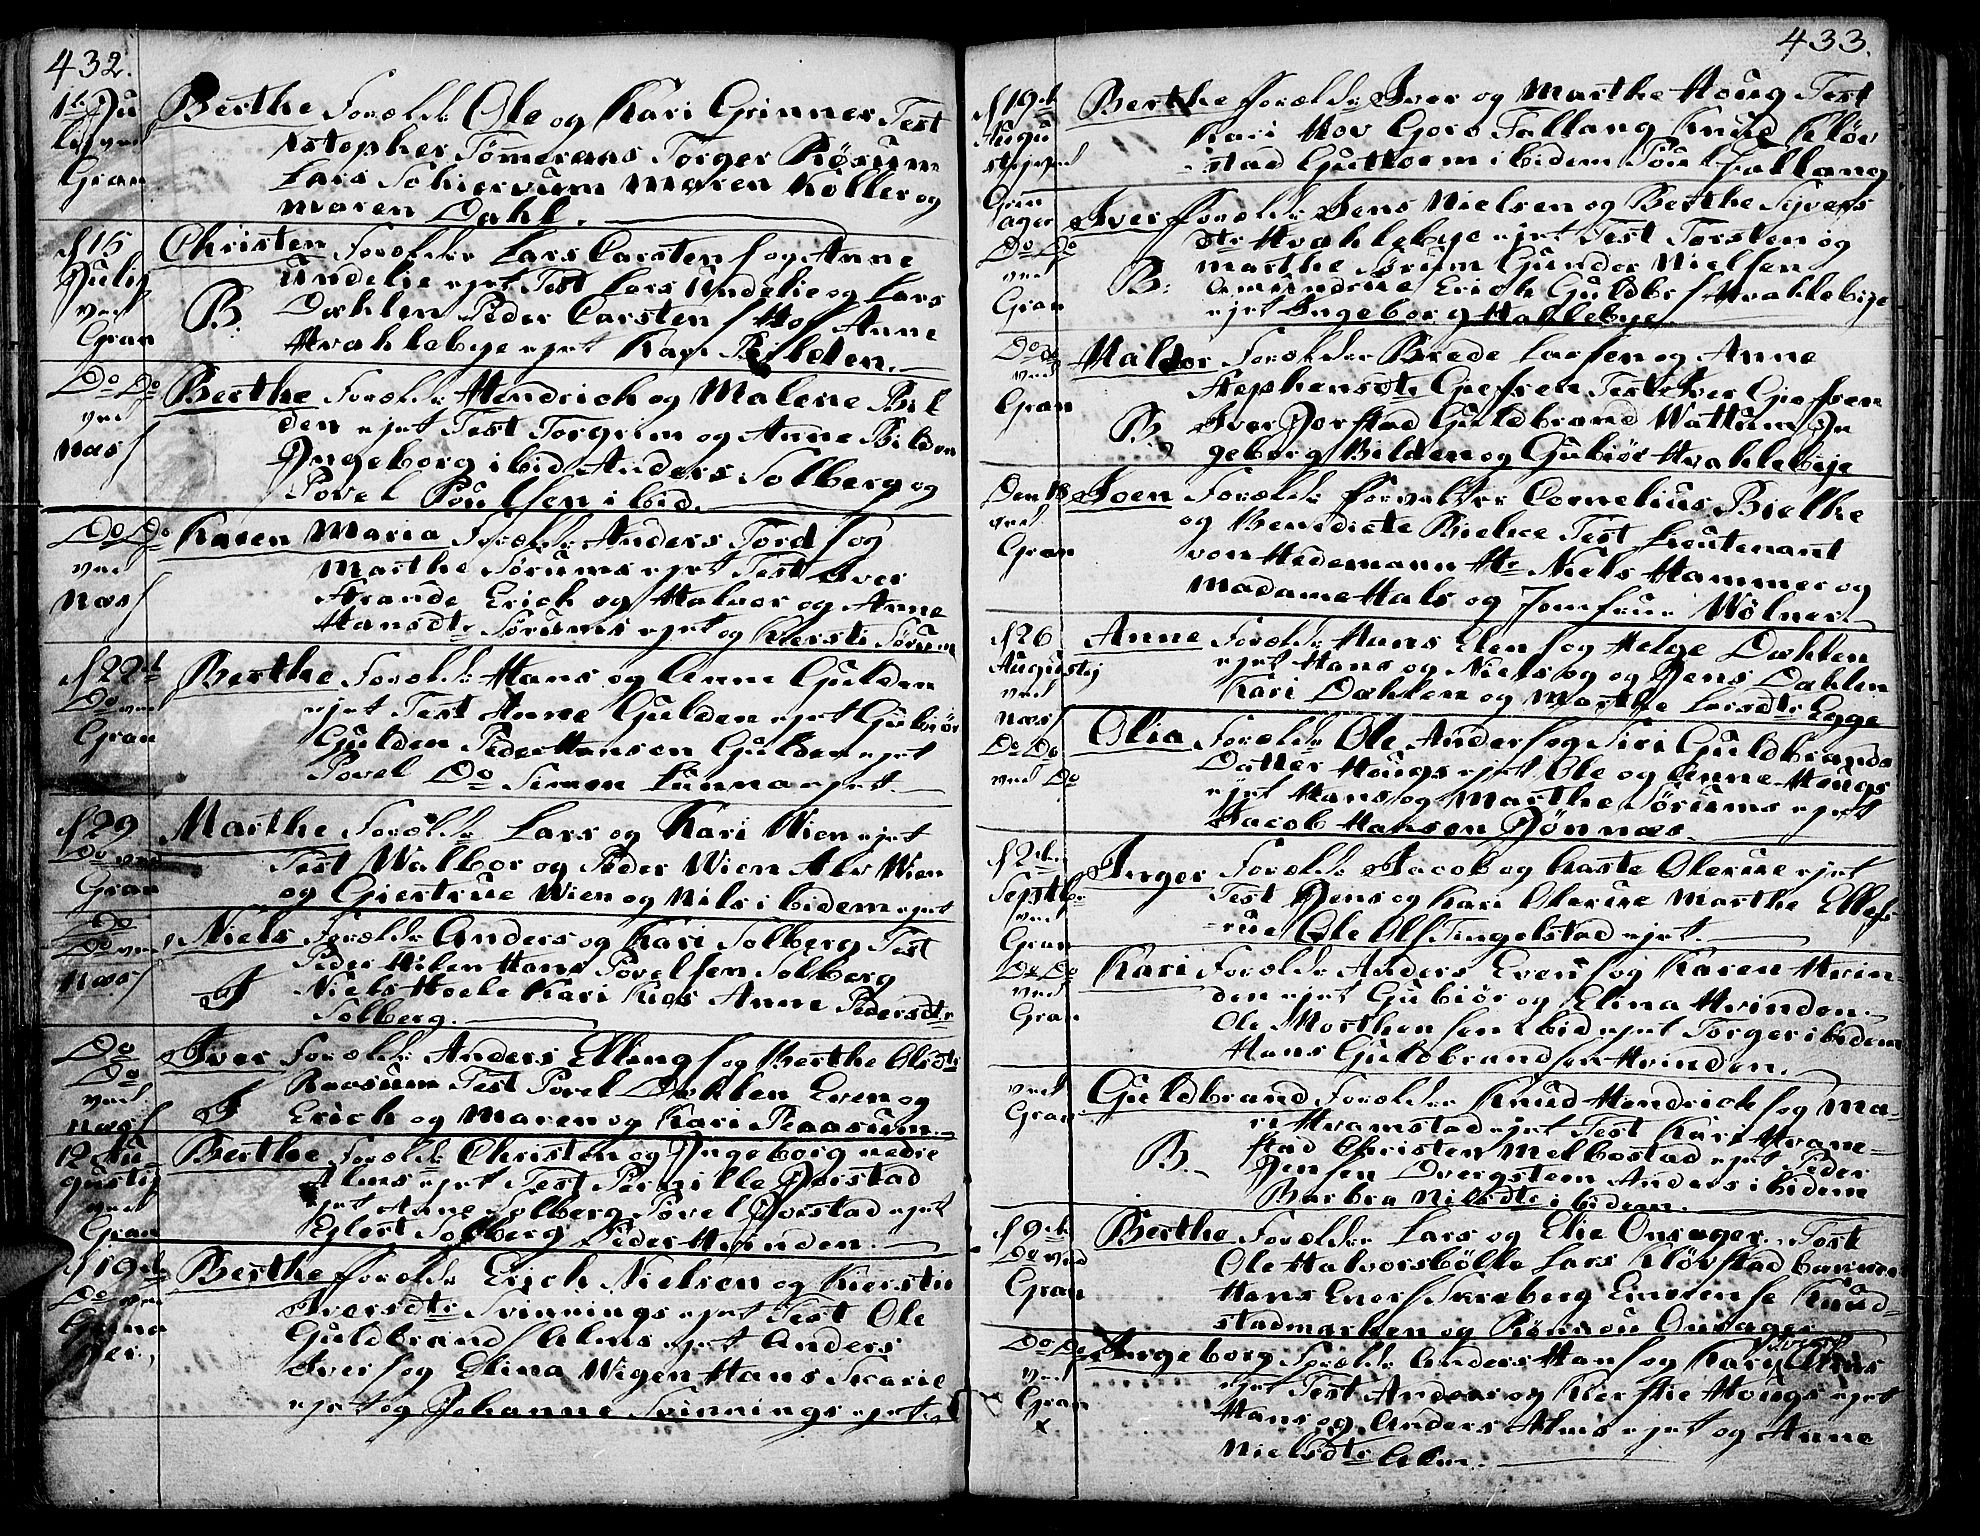 432.
1ste Ju
lij ved
Gran
Berthe Foræld: Ole og Kari Grinner Test
Kstopher Tømmeraas Torger Røsum
Lars Schiervum Maren Koller og
Maren Dahl.
d 15
Julij
ved
Gran
Christen Foræld: Lars Carstens og Anne
Undelie ejet Test Lars Undelie og Lars
B. Dæhlen Peder Carstens Hof Anne
Hvahlebye ejet Kari Bilden.
Do Do
ved
Næss
Berthe Foræld: Hendrich og Malene Bil
den ejet Test Torgrim og Anne Bilden
Ingeborg ibid Anders Solberg og
Povel Poulsen ibid.
Do Do
ved
Næss
Karen Maria Foræld: Anders Tords og
Marthe Sørums ejet Test Iver
Strande Erich og Halvor og Anne
Hansdtr Sørums ejet og Kiersti Sørum
d 22d
Do ved
Gran
Berthe Foræld: Hans og Anne Gulden
ejet Test Anne Gulden ejet Gubiør
Gulden Peder Hansen Gulden ejet
Povel Do Simen Lunna ejet
d 29
Do ved
Gran
Marthe Foræld: Lars og Kari Wien ejet
Test Walbor og Peder Wien Alv Wien
og Giertrue Wien og Nils ibidem ejet
Do
Do ved
Næss
Niels Foræld: Anders og Kari Solberg Test
Peder Hilen Hans Povelsen Solberg
F Niels Hoele Kari Kios Anne Pedersdtr
Solberg.
Do
Do
ved
Næss
Iver Foræld: Anders Ellings og Berthe Olsdtr
Raasum Test Povel Dæhlen Even og
F Erich og Maren og Kari Raasum.
12 Au
gustij
ved
Gran
Berthe Foræld: Christen og Ingeborg nedre
Alms ejet Test Pernille Jorstad
ejet Anne Solberg Povel Jorstad ejet
Eglert Solberg Peder Hvinden.
d 19de
Do ved
Grina
ger.
Berthe Foræld: Erich Nielsen og Kierstin
Iversdtr Svinnings ejet Test Ole
Guldbrands Alms ejet Anders
Ivers og Elina Wigen Hans Scarie
ejet og Johanne Svinnings ejet
433.
d 19de
Augu
stij ved
Grin
ager
Berthe Foræld: Iver og Marthe Houg Test
Kari Hov Goro Fallang Knud Kløv
stad Guttorm ibidem Poul Fallang
Do Do
ved
Gran
Iver Foræld: Jens Nielsen og Berthe Syvers
dtr Hvahlebye ejet Test Torsten og
Marthe Sørum Gunder Nielsen
B. Amundrue Erich Guldbrs Hvahlebye
ejet Ingeborg Hahlebye.
Do do
ved
Gran
Haldor Foræld: Brede Larsen og Anne
Stephensdtr Gjefsen Test Iver Gjefsen
B. Iver Jorstad Guldbrand Wattum In
geborg Bilden og Gubiør Hvahlebye
Den 18
ved
Gran
Joen Foræld: Forvalter Cornelius Bielke
og Benedicte Bielke Test Lieutenant
von Hedemann Hr Niels Hammer og
Madame Hals og Jomfrue Wølner
d 26
Augustij
ved
Næss
Anne Foræld: Hans Elens og Helge Dæhlen
ejet Hans og Niels og og Jens Dæhlen
Kari Dæhlen og Marthe Larsdtr Egge
Do Do
ved Do
Olia Foræld: Ole Anders og Siri Guldbrands
Datter Hougs ejet Ole og Anne Hougs
ejet Hans og Marthe Sørums ejet
Jacob Hansen Rønnæs
d 2de
Septbr
ved
Gran
Inger Foræld: Jacob og Kaste Olerue ejet
Test Jens og Kari Olerue Marthe Ellefs
rue Ole Ols Tingelstad ejet
Do Do
ved
Gran
Kari Foræld: Anders Evens og Karen Hvin
den ejet Gubiør og Elina Hvinden.
Ole Morthensen ibid ejet Torger ibidem
Hans Guldbrandsen Hvinden.
ved
Gran
Guldbrand Foræld: Knud Hendrichs og Ma-
ri Hvamstad ejet Test Kari Hvam-
B. stad Christen Melbostad ejet Peder
Jensen Dvergsten Anders ibidem
Barbra Nilsdtr ibidem.
d 9de
Do ved
Gran
Berthe Foræld: Lars og Elie Onsager. Test
Ole Halvorsbølle Lars Kløvstad
Hans Evers Screberg Knud-
stadmarken og Rønnou Onsager
Do Do
ved
Gran
x
Ingeborg Foræld: Anders Hans og Kari Alms
ejet Test Anders og Kierstie Hougs ejet
Hans og Anders Alms ejet og Anne
Nielsdtr Alm.